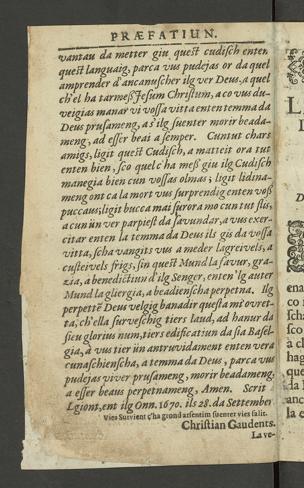 PRÆFATIUN.
vantau da metter giu quest cudisch enten
quest languaig, parca vus pudejas or da quel
amprender d'ancanuscher ilg ver Deus, a quel
ch'el ha tarmeß Jesum Christum, a co vus du-
veigias manar vi vossa vitta enten temma da
Deus prusameng, a s'ilg suenter morir beada-
meng, ad esser beai a semper. Cuntut chars
amigs, ligit quest Cudisch, a matteit ora tut
enten bien, sco quel c ha meß giu ilg Cudisch
manegia bien cun vossas olmas; ligit lidina-
meng ont ca la mort vus surprendig enten voß
puccaus; ligit bucca mai surora mo cun tut flis,
a cun ün ver parpiest da favundar, a vus exer-
citar enten la temma da Deus ils gis da vossa
vitta, scha vangits vus a meder lagreivels, a
custeivels frigs, sin quest Mund la favur, gra-
zia, a benedictiun d'ilg Senger, enten 'lg auter
Mund la gliergia, a beadienscha perpetna. Ilg
perpetté Deus velgig banadir questa mi' ovret-
ta, ch'ella surveschig tiers laud, ad hanur da
sieu glorius num, tiers edificatiun da sia Basel-
gia, a vus tier ün antruvidament enten vera
cunaschienscha, a temma da Deus, parca vus
pudejas viver prusameng, morir beadameng,
a esser beaus perpetnameng, Amen. Scrit
Lgiont, ent ilg Onn. 1670. ils 28. da Settember
Vies Survient c'ha grond arsentim suenter vies salit.
Christian Gaudents.
La ve-